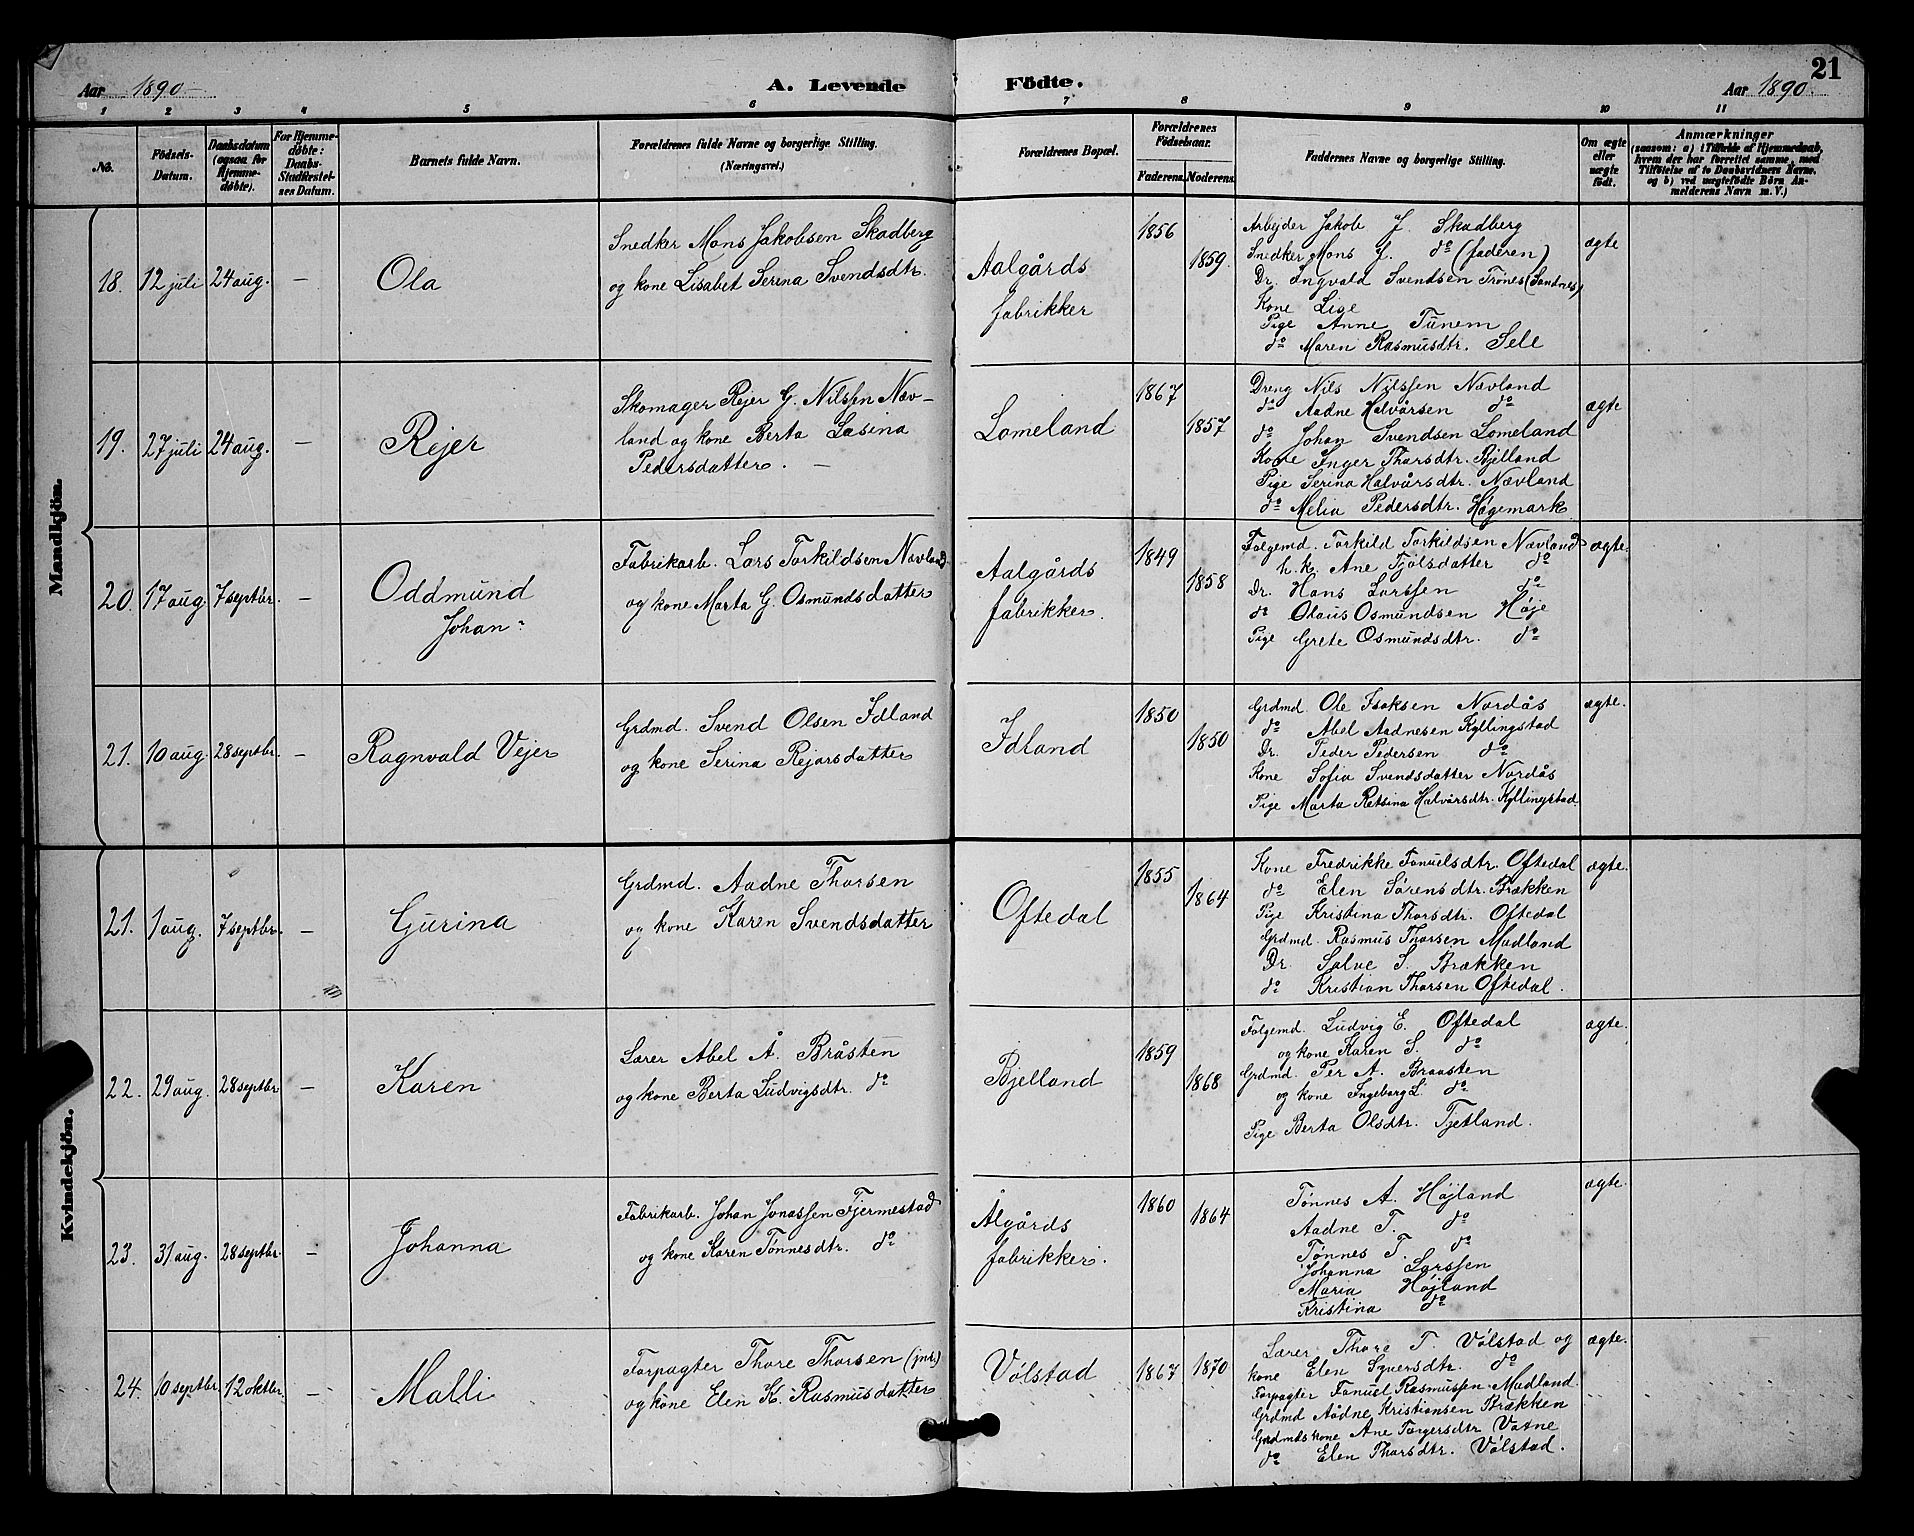 Aar 1890 A. Levende Födte. Aar 1890. 21
1 2 3 4 5 6 7 8 9 10 11
No.
Födsels-Datum.
Daabsdatum (ogsaa for Hjemmedøbte).
For Hjemmedøbte: Daabs-Stadfæstelses Datum.
Barnets fulde Navn.
Forældrenes fulde Navne og borgerlige Stilling. (Næringsvei.)
Forældrenes Bopæl.
Forældrenes Födselsaar.
Faderens. Moderens.
Faddernes Navne og borgerlige Stilling.
Om ægte eller uægte födt.
Anmærkninger
(saasom: a) i Tilfælde af Hjemmedaab, hvem der har forrettet samme, med Tilföielse af to Daabsvidners Navne, og b) ved uægtefödte Börn Anmelderens Navn m. V.)
Mandkjön.
18. 12 juli 24 aug. — Ola
Snedker Mons Jakobsen Skadberg
og kone Lisabet Serina Svendsdtr.
Aalgårds
fabrikker
1856 1859.
Arbejder Jakob J. Skadberg
Snedker Mons J. do (faderen)
Dr. Ingvald Svendsen Trones (Sandnes)
Kone Lige
Pige Anne Tunem
do Maren Rasmusdtr. Sele
ægte
19. 27 juli 24 aug. — Rejer
Skomager Rejer G. Nilssen Næv-
land og kone Berta Lasina
Pedersdatter. —
Lomeland
1867 1857
Dreng Nils Nilssen Nævland
do Aadne Halvårsen do
do Johan Svendsen Lomeland
Kone Inger Thorsdtr. Bjelland
Pige Serina Halvårsdtr. Nævland
do Melia Pedersdtr. Høgemark
ægte
20. 17 aug. 7 septbr. — Oddmund
Johan
Fabrikarb. Lars Torkildsen Nævland
og kone Marta G. Osmundsdatter
Aalgårds
fabrikker.
1849 1858
Folgemd. Torkild Torkildsen Nævland
h. k. Ane Tjølsdatter do
Dr. Hans Larssen do
do Olaus Osmundsen Høje
Pige Grete Osmundsdtr. do
ægte.
21. 10 aug. 28 septbr. — Ragnvald Vejer
Grdmd. Svend Olsen Idland
og kone Serina Rejarsdatter
Idland
1850 1850
Grdmd Ole Isaksen Nordås
do Abel Aadnesen Kyllingstad
Dr. Peder Pedersen do
Kone Sofia Svendsdatter Nordås
Pige Marta Retsina Halvårsdtr. Kyllingstad
ægte.
Kvindekjön.
21. 1 aug. 7 septbr. — Gurina
Grdmd. Aadne Thorsen
og kone Karen Svendsdatter
Oftedal
1855 1864
Kone Fredrikke Fanuelsdtr. Oftedal
do Elen Sørensdtr. Brækken
Pige Kristina Thorsdtr. Oftedal
Grdmd. Rasmus Thorsen Madland
Dr. Salve S. Brækken
do Kristian Thorsen Oftedal.
ægte.
22. 29 aug. 28 septbr — Karen
Lærer Abel A. Bråsten
og kone Berta Ludvigsdtr. do
Bjelland
1859 1868
Folgemd. Ludvig E. Oftedal
og kone Karen S. do
Grdmd. Per A. Braasten
og kone Ingeborg L. do
Pige Berta Olsdtr. Tjetland.
ægte.
23. 31 aug. 28 septbr. — Johanna
Fabrikarb. Johan Jonassen Fjermestad
og kone Karen Tønnesdtr. do
Ålgårds
fabrikker.
1860 1864
Tønnes A. Højland
Aadne T. do
Tønnes T. do
Johanna Larssen
Maria Højland
Kristina do
ægte.
24. 10 septbr. 12 oktbr. — Malli
Forpagter Thore Thorsen (jnr.)
og kone Elen K. Rasmusdatter
Vølstad
1867 1870
Lærer Thore T. Vølstad og
kone Elen Syversdtr. do
Forpagter Fanuel Rasmussen Madland
Grdmd Aadne Kristiansen Brækken
Grdmdskone Ane Torgersdtr Vatne
do Elen Thorsdtr. Vølstad.
ægte.